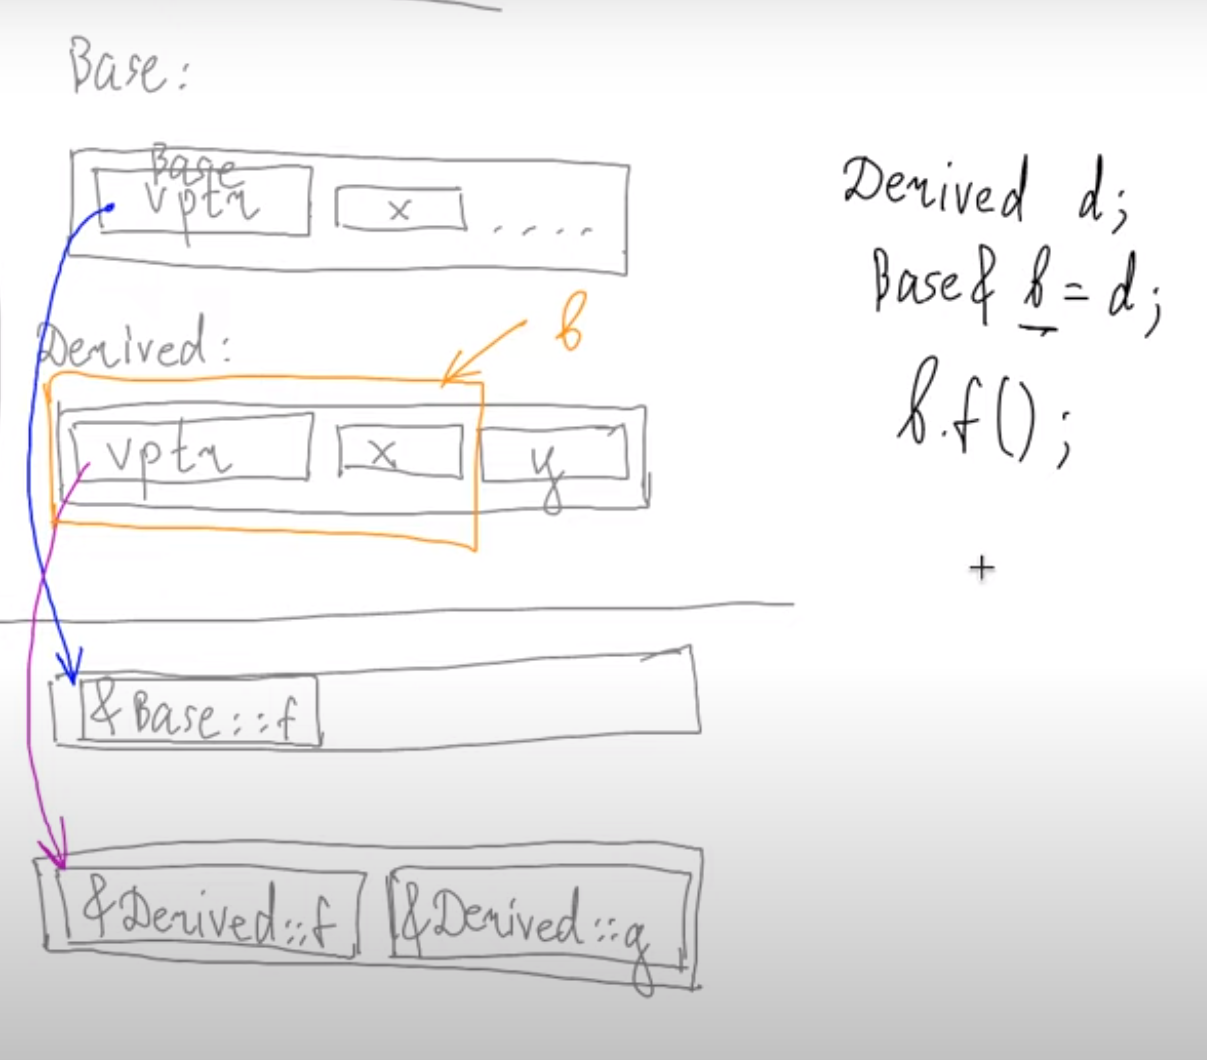 Base:
Base
vptr
x
.....
Derived:
b
vptr
x
y
&Base::f
&Derived::f
&Derived::g
Derived d;
Base& b = d;
b.f();